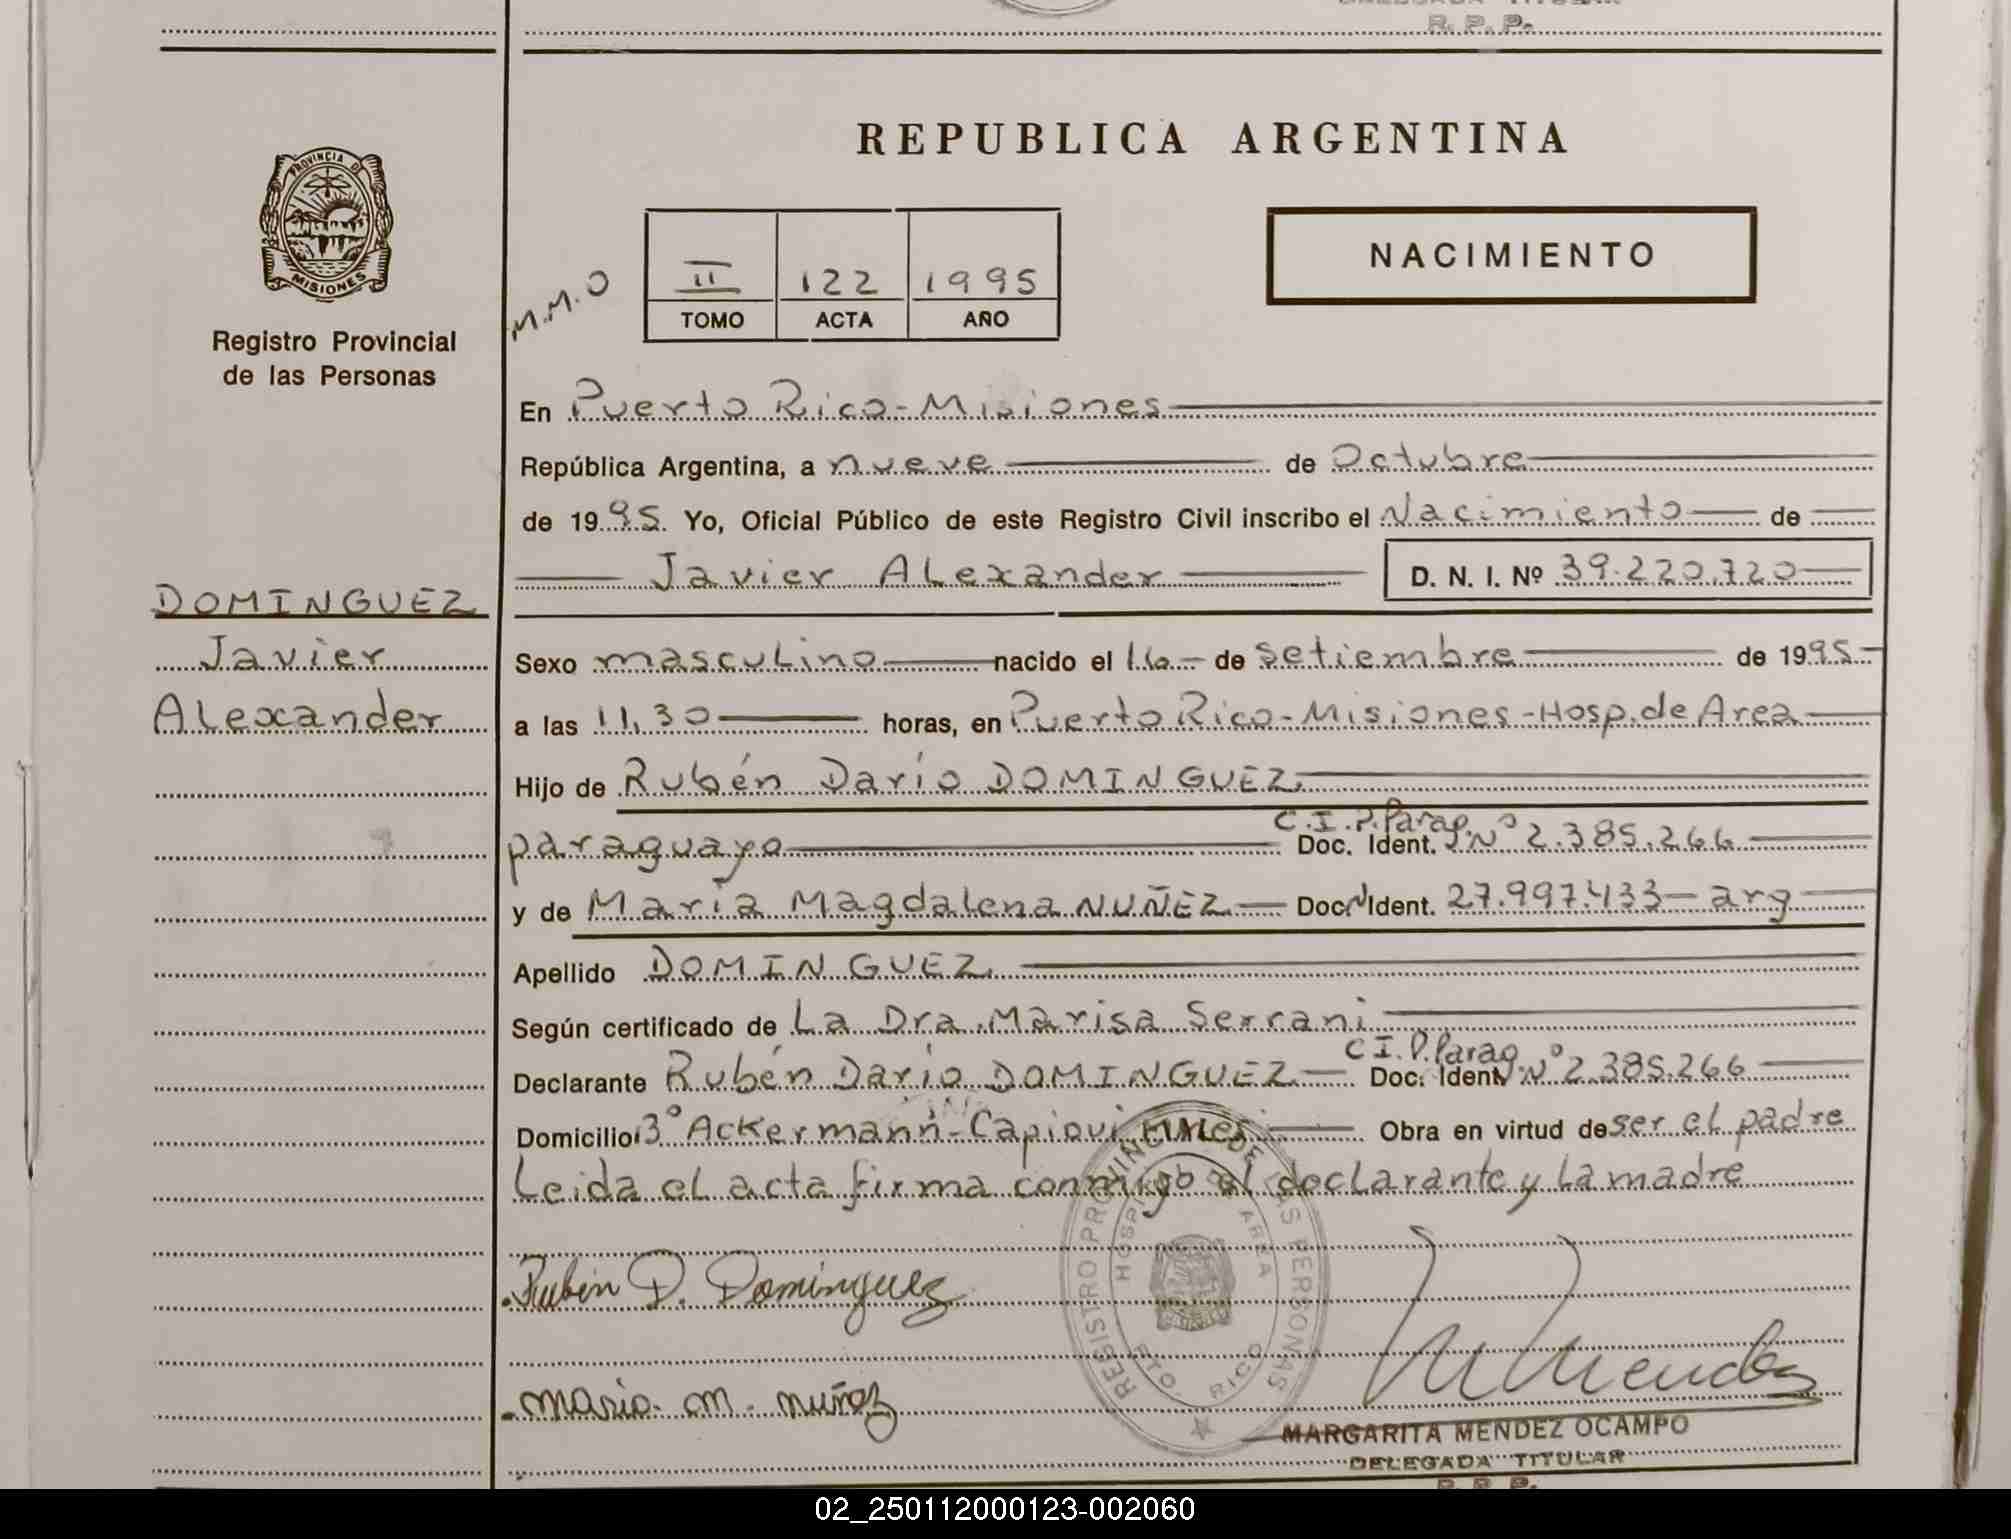 R. P. P.
PROVINCIA DE
MISIONES
Registro Provincial
de las Personas
DOMINGUEZ
Javier
Alexander
REPUBLICA ARGENTINA
M.M.O
II 122 1995
TOMO ACTA AÑO
NACIMIENTO
En Puerto Rico-Misiones
República Argentina, a nueve de Octubre
de 1995. Yo, Oficial Público de este Registro Civil inscribo el Nacimiento de
Javier Alexander D. N. I. Nº 39.220.720
Sexo masculino nacido el 16 de setiembre de 1995
a las 11,30 horas, en Puerto Rico-Misiones-Hosp. de Area
Hijo de Rubén Darío DOMINGUEZ
C.I.P. Parag.
paraguayo Doc. Ident. Nº 2.385.266
y de María Magdalena NUÑEZ Doc. N Ident. 27.997.433 - arg
Apellido DOMINGUEZ
Según certificado de La Dra. Marisa Serrani
C I. P. Parag
Declarante Rubén Darío DOMINGUEZ Doc. Ident. Nº 2.385.266
Domicilio 3º Ackermann-Capiovi Mnes Obra en virtud de ser el padre
Leida el acta firma conmigo el declarante y La madre
REGISTRO PROVINCIAL DE LAS PERSONAS
HOSPITAL DE AREA
PTO. RICO
Rubén D. Dominguez
M Mendez
Maria. M. Nuñez
MARGARITA MENDEZ OCAMPO
DELEGADA TITULAR
R. P. P.
02_250112000123-002060